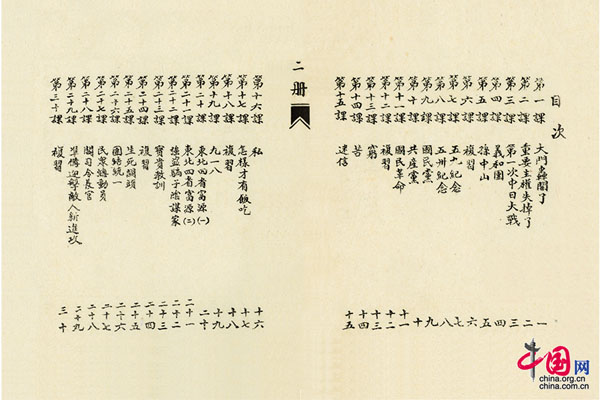 目次
第一課 大門轟開了 一
第二課 重要主權失掉了 二
第三課 第一次中日大戰 三
第四課 義和團 四
第五課 孫中山 五
第六課 複習 六
第七課 五九紀念 七
第八課 五卅紀念 八
第九課 國民黨 九
第十課 共產黨 十
第十一課 國民革命 十一
第十二課 複習 十二
第十三課 窮 十三
第十四課 苦 十四
第十五課 迷信 十五
二册
第十六課 私 十六
第十七課 怎樣才有飯吃 十七
第十八課 複習 十八
第十九課 九一八 十九
第二十課 東北四省富源(一) 二十
第二十一課 東北四省富源(二) 二十一
第二十二課 強盜騙子陰謀家 二十二
第二十三課 寶貴教訓 二十三
第二十四課 複習 二十四
第二十五課 生死關頭 二十五
第二十六課 團結統一 二十六
第二十七課 民眾總動員 二十七
第二十八課 閻司令長官 二十八
第二十九課 準備迎擊敵人新進攻 二十九
第三十課 複習 三十
中国网
china.org.cn
china.com.cn